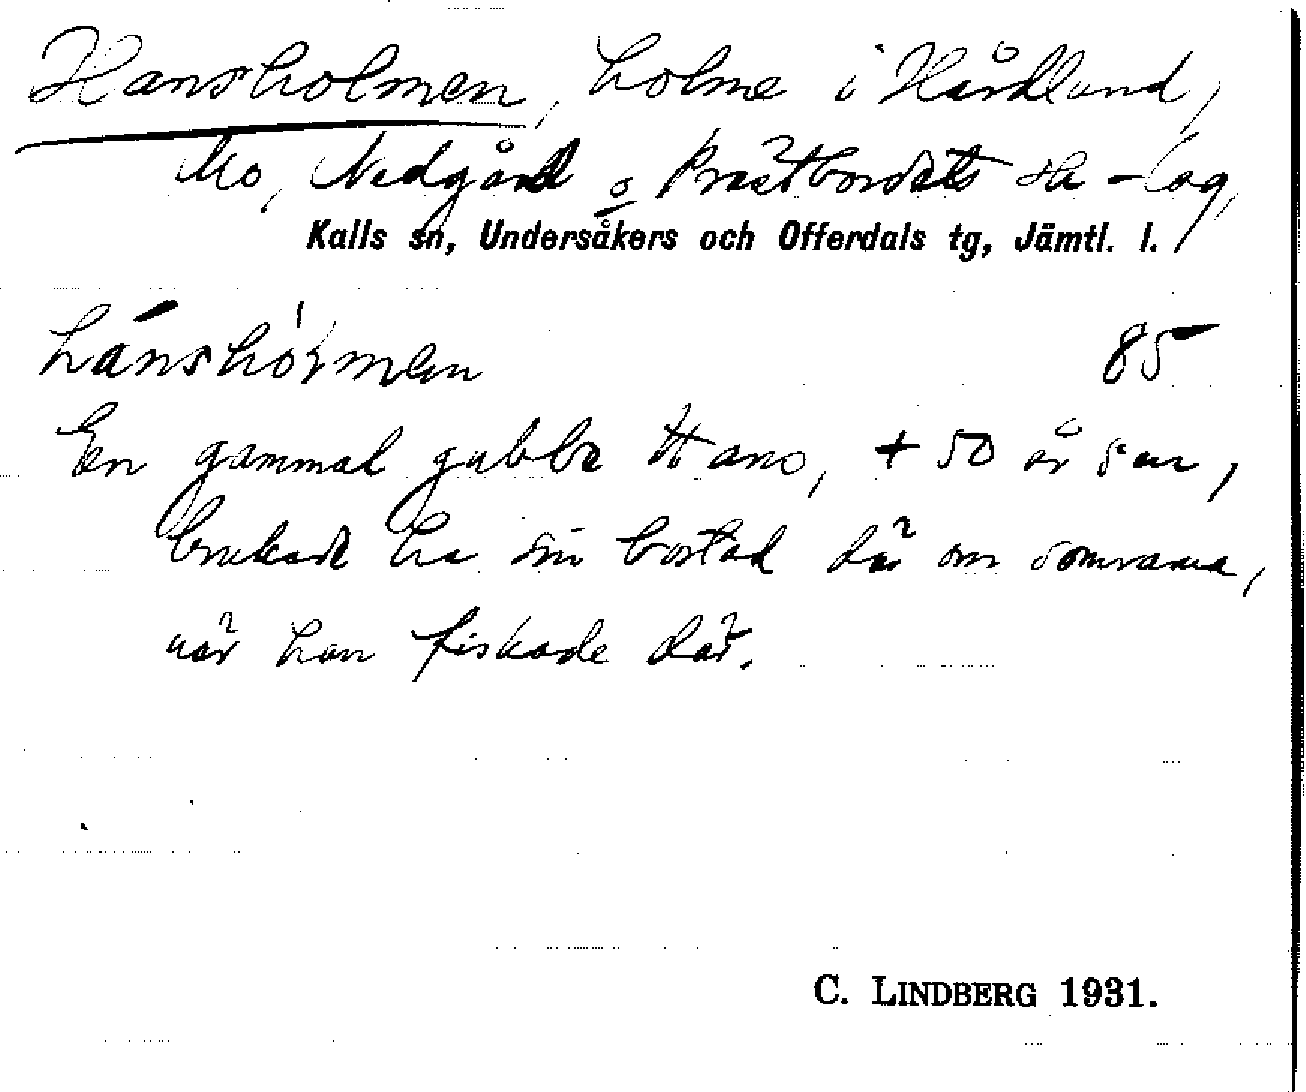 Hansholmen, holme i Hårdland,
Mo, Nedgård o Prästbordets sk-lag,
Kalls sn, Undersåkers och Offerdals tg, Jämtl. l.
85
En gammal gubbe Hans, + 50 år sen,
brukade ha sin bostad där om somrarna,
när han fiskade där.
C. LINDBERG 1931.